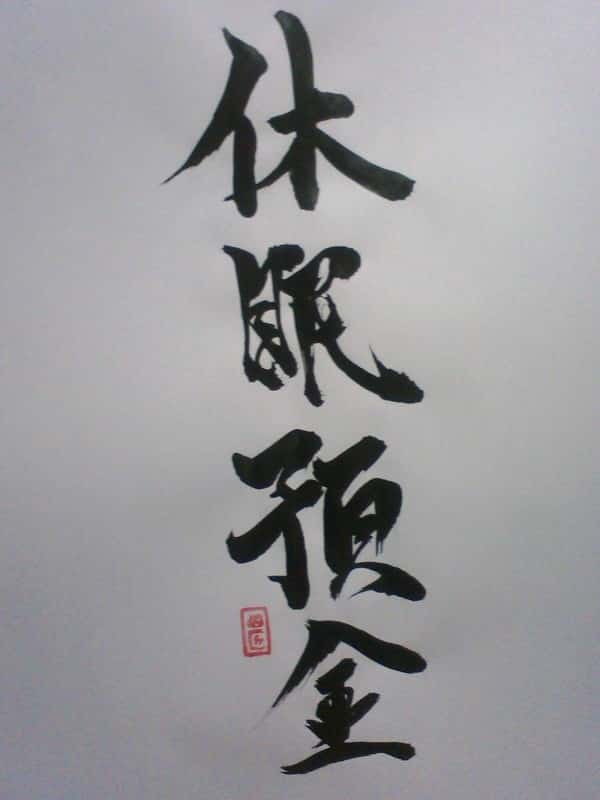 休眠預金